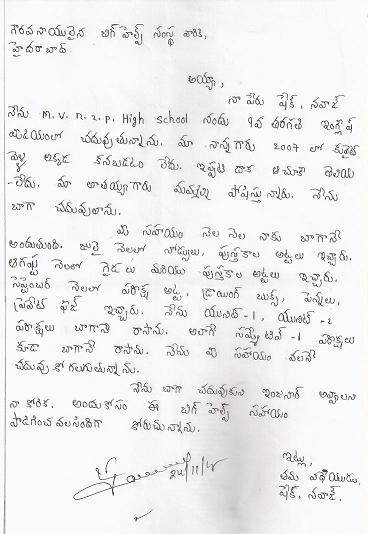 గౌరవనాయులైన బిగ్ హెల్ప్ సంస్థ వారికి,
హైదరాబాద్.
అయ్యా,
నా పేరు షేక్. నవాజ్
నేను M.V.N.R.P. High school నందు 9వ తరగతి ఇంగ్లీష్
మీడియంలో చదువుతున్నాను. మా నాన్నగారు 2007 లో కువైట్
వెళ్ళి అక్కడ కనబడటం లేదు. ఇప్పటి దాకా ఆచూకీ తెలియ
-లేదు. మా తాతయ్యగారు మమ్మల్ని పోషిస్తున్నారు. నేను
బాగా చదువుతాను.
మీ సహాయం నెల నెల నాకు బాగానే
అందుతుంది. జులై నెలలో నోట్సులు, పుస్తకాల అట్టలు ఇచ్చారు.
ఆగష్టు నెలలో గైడులు మరియు పుస్తకాల అట్టలు ఇచ్చారు.
సెప్టెంబర్ నెలలో పరీక్ష అట్ట, డ్రాయింగ్ బుక్స్, పెన్నులు,
ప్రైవేట్ ఫీజ్ ఇచ్చారు. నేను యునిట్-1, యునిట్-2
పరీక్షలు బాగానే రాసాను. అలాగే సమ్మెటివ్-1 పరీక్షలు
కూడా బాగానే రాసాను. నేను మీ సహాయం వలనే
చదువుకో గలుగుతున్నాను.
నేను బాగా చదువుకుని ఇంజనీర్ అవ్వాలని
నా కోరిక. అందుకోసం ఈ బిగ్ హెల్ప్ సహాయం
పొడిగించ వలసిందిగా కోరుచున్నాను.
ఇట్లు,
తమ విధేయుడు.
షేక్. నవాజ్.
24/11/